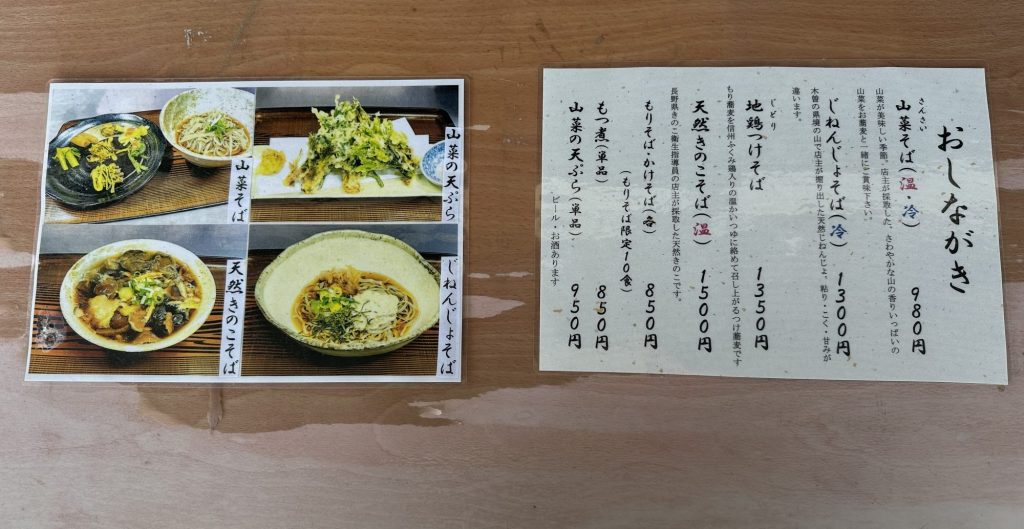 山菜そば
山菜の天ぷら
天然きのこそば
じねんじょそば
おしながき
さんさい
山菜そば(温・冷) 980円
山菜が美味しい季節。店主が採取した、さわやかな山の香りいっぱいの
山菜をお蕎麦と一緒にご賞味下さい。
じねんじょそば(冷) 1300円
木曽の県境の山で店主が掘り出した天然じねんじょ。粘り・こく・甘みが
違います。
じどり
地鶏つけそば 1350円
もり蕎麦を信州ふくみ鶏入りの温かいつゆに絡めて召し上がるつけ蕎麦です
天然きのこそば(温) 1500円
長野県きのこ衛生指導員の店主が採取した天然きのこです。
もりそば・かけそば(各) 850円
(もりそば限定10食)
もつ煮(単品) 850円
山菜の天ぷら(単品) 950円
ビール・お酒あります